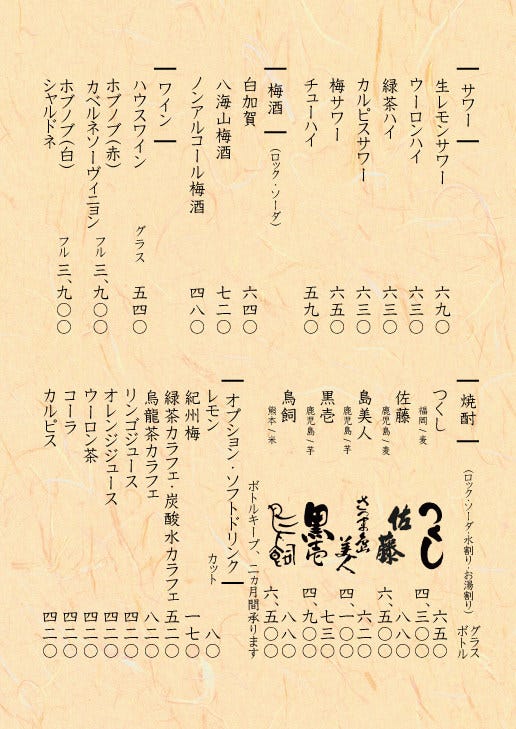 サワー
生レモンサワー 六九〇
ウーロンハイ 六三〇
緑茶ハイ 六三〇
カルピスサワー 六三〇
梅サワー 六五〇
チューハイ 五九〇
梅酒 (ロック・ソーダ)
白加賀 六四〇
八海山梅酒 七二〇
ノンアルコール梅酒 四八〇
ワイン
ハウスワイン グラス 五四〇
ホブノブ(赤)
カベルネソーヴィニヨン フル 三、九〇〇
ホブノブ(白)
シャルドネ フル 三、九〇〇
焼酎 (ロック・ソーダ水割り・お湯割り) グラス
ボトル
つくし つくし 六五〇
福岡/麦 四、三〇〇
佐藤 佐藤 八八〇
鹿児島/麦 六、五〇〇
島美人 さつま島美人 六二〇
鹿児島/芋 四、一〇〇
黒壱 黒壱 七三〇
鹿児島/芋 四、九〇〇
鳥飼 鳥飼 八八〇
熊本/米 六、五〇〇
ボトルキープ、二ヵ月間承ります
オプション・ソフトドリンク
レモン カット 八〇
紀州梅 一七〇
緑茶カラフェ・炭酸水カラフェ 五二〇
烏龍茶カラフェ 八二〇
リンゴジュース 四二〇
オレンジジュース 四二〇
ウーロン茶 四二〇
コーラ 四二〇
カルピス 四二〇